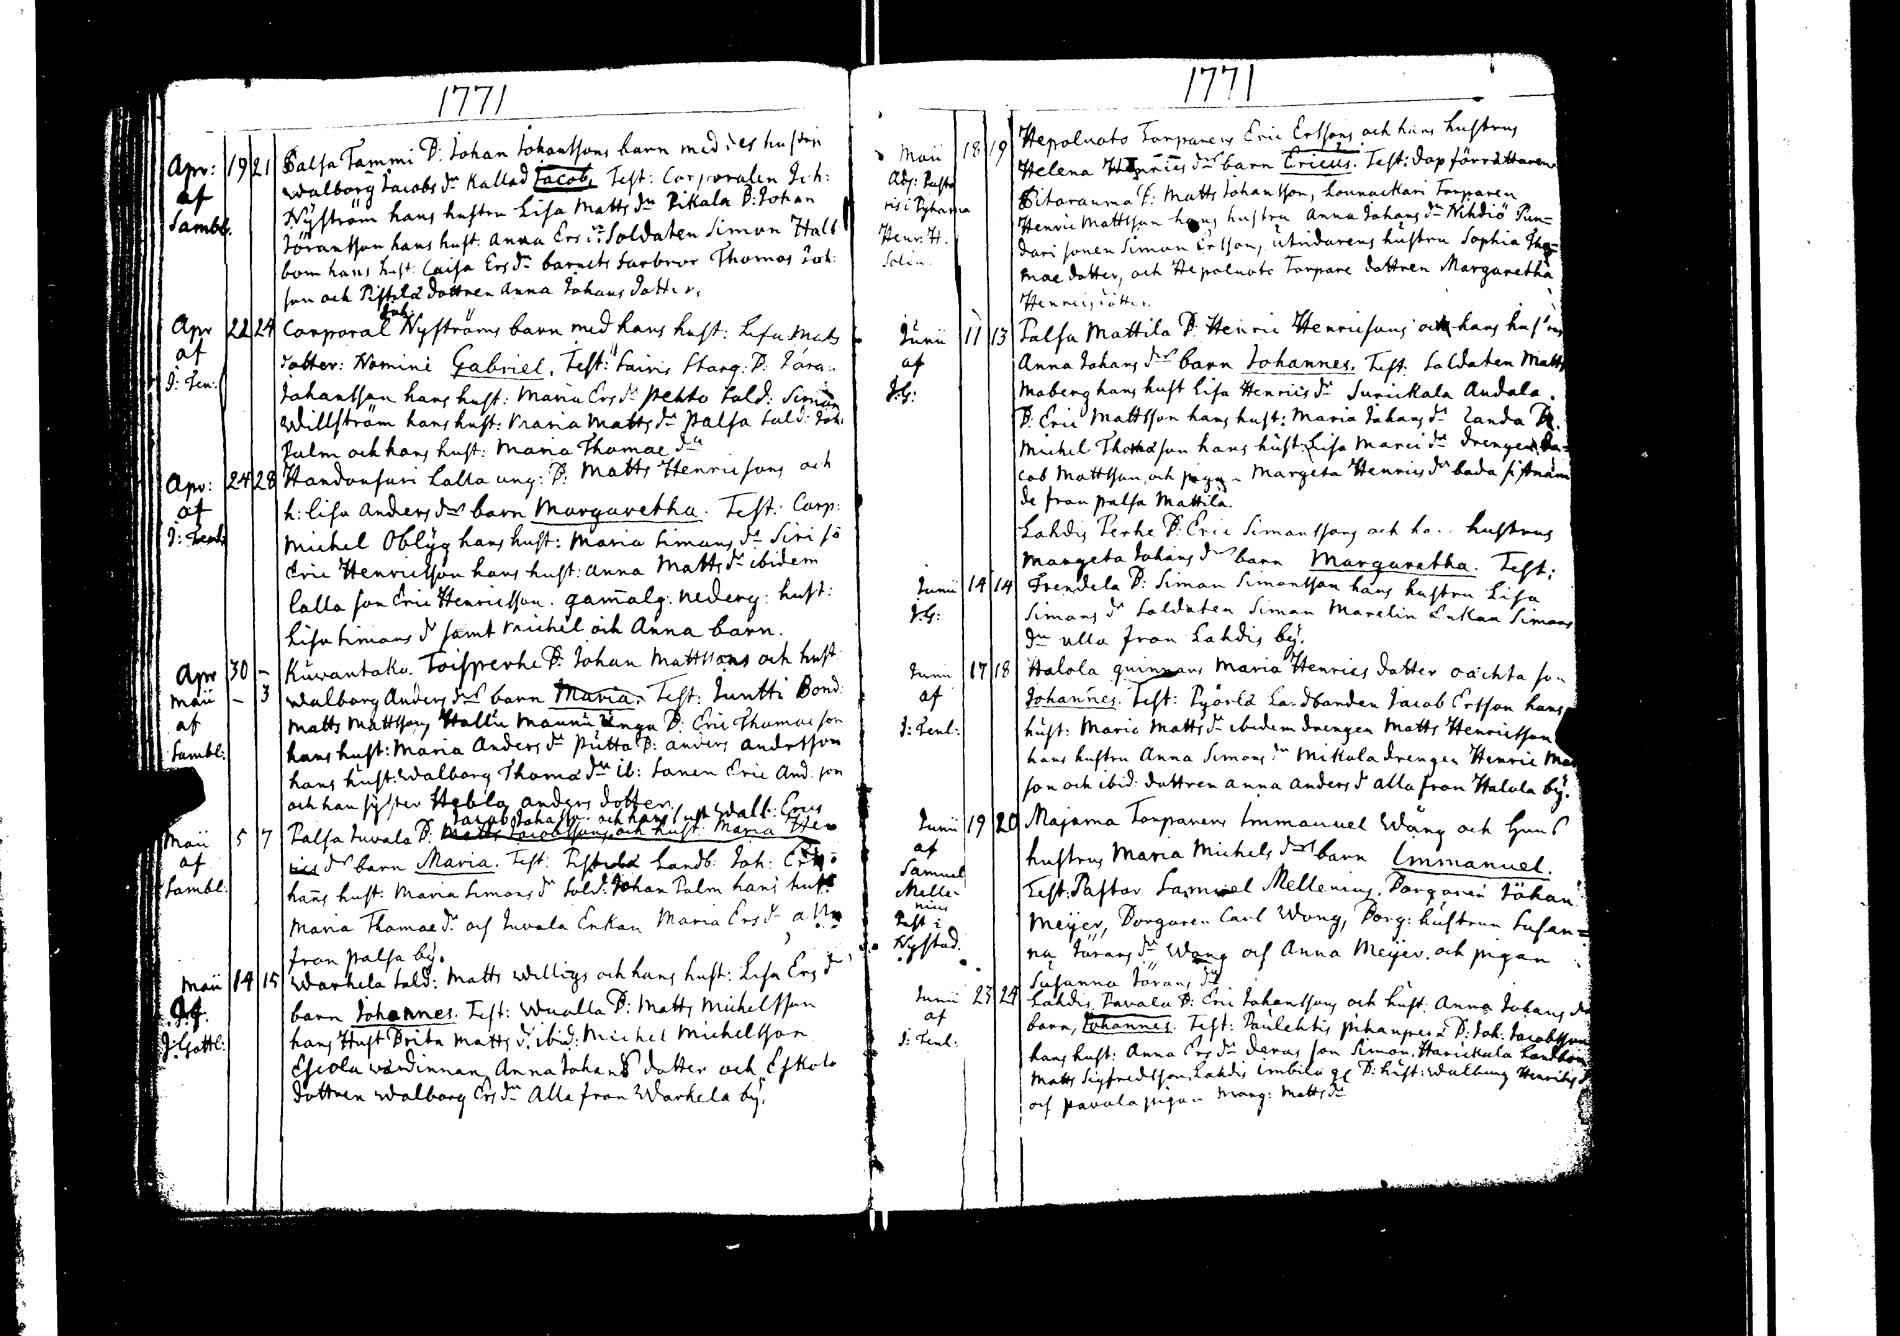 1771
Apr: 19 21 Palsa Tammi B: Johan Johanssons barn med des hustru
af Walborg Jacobs dr Kallad Jacob, Test: Corporalen Joh:
Sambl. Nyström hans hustru Lisa Matts dr Pikala B: Johan
Jöransson hans hust: Anna Ers dr Soldaten Simon Hall
bom hans hust: Caisa Ers dr barnets farbror Thomas Joh:
son och Pistola dottren Anna Johans dotter.
Joh:
Apr 22 24 Corporal Nyströms barn med hans hust: Lisa Matts
af dotter: Nomine Gabriel. Test:
J: Ten: Johansson hans hust: Maria Ers dr Pehto Sold: Simon
Willström hans hust: Maria Matts dr Palsa Sold: Joh:
Palm och hans hust: Maria Thomae dr
Apr: 24 28 Handonsuri Lalla ung: B: Matts Henricsons och
af h: Lisa Anders drs barn Margaretha. Test: Corp:
J: Tenl: Michel Oblyg hans hust: Maria Simons dr
Eric Henricsson hans hust: Anna Matts dr ibidem
Lalla son Eric Henricsson. gamalg: nederg: hust:
Lisa Simons dr samt Michel och Anna barn.
Apr 30 - Kuwantaka. Toisperhe B: Johan Mattssons och hust
Maii - 3 Walborg Anders drs barn Maria. Test: Juntti Bond:
af Matts Mattson, Hallu Maunu unga B: Eric Thomae son
Sambl: hans hust: Maria Anders dr Putta B: Anders Andersson
hans hust: Walborg Thomae dr ib: Sonen Eric And: son
och han syster Hebla Anders dotter.
Jacob Johans: och hans hust Walb: Erics
Maii 5 7 Palsa Juvala B: Matts Jacobssons och hust: Maria Hen
af rics drs barn Maria. Test: Pistola Landb: Joh: Ers:
Sambl: hans hust: Maria Simons dr Sold: Johan Palm hans hust:
Maria Thomae dr och Juvala Enkan Maria Ers dr alla
från Palsa by.
Maii 14 15 Warhela Sold: Matts Willigs och hans hust: Lisa Ers dr
af barn Johannes. Test: Wualla B: Matts Michelsson
J: Gottl: hans Hust Brita Matts dr ibid: Michel Michelsson
Escola wärdinnan Anna Johans dotter och Eskola
dottren Walborg Ers dr Alla från Warhela by.
1771
Hepoluoto Torparens Eric Ersons och hans hustrus
Maii 18 19 Helena Henrics drs barn Ericus. Test: Dop förrättaren
Adj: Pasto
ris i Pyhäma Pitorauma B: Matts Johansson, Lounackari Torparen
Henr: H. Henric Mattsson hans hustru Anna Johans dr Nihdiö Pun=
Solin. dari sonen Simon Ersson, utridarens hustru Sophia Tho=
mae dotter, och Hepoluoto Torpare dottren Margaretha
Henrics dotter.
Junii 11 13 Palsu Mattila B: Henric Henricsons och hans hustrus
af Anna Johans drs barn Johannes. Test: Soldaten Matts
J:G: Moberg hans hust Lisa Henrics dr Surickala Andala.
B: Eric Mattsson hans hust: Maria Johans dr Landa B.
Michel Thomasson hans hust Lisa Marci dr Drengen Ja=
cob Mattsson, och pigan Margeta Henrics dr båda sistnäm
de från Palsa Mattila.
Lahdis Perhe B: Eric Simonssons och ha.. hustrus
Margeta Johans drs barn Margaretha. Test:
Junii 14 14 Frendela B: Simon Simonsson hans hustru Lisa
J:G: Simons dr Soldaten Simon Marelin Enkan Simons
dr alla från Lahdis by.
Junii 17 18 Halola quinnans Maria Henrics dotter oächta son
af Johannes. Test: Pyörlä Landbonden Jacob Ersson hans
J: Tenl: hust: Maria Matts dr ibidem drengen Matts Henricsson
hans hustru Anna Simons dr Mikola drengen Henric Mat
son och ibid: dottren Anna Anders dr alla från Halola by.
Junii 19 20 Majama Torparens Immanuel Wång och hans
af hustrus Maria Michels drs barn Immanuel.
Samuel
Melle= Test: Pastor Samuel Mellenius. Borgaren Johan
nius Meijer, Borgaren Carl Wong, Borg: hustrun Susan=
Past: i
Nystad. na Jörans dr Wong och Anna Meijer och pigan
Susanna Jörans dr
Junii 23 24 Lahdis Pavala B: Eric Johanssons och hust. Anna Johans dr
af barn, Johannes. Test: Paulehtis B: Joh: Jacobsson
J: Tenl: hans hust: Anna Ers dr deras son Simon. Harickala Landbon
Matts Sigfredsson, Lahdis Imbila B: hust: Walborg Henrics d
och Pavala pigan Marg: Matts dr